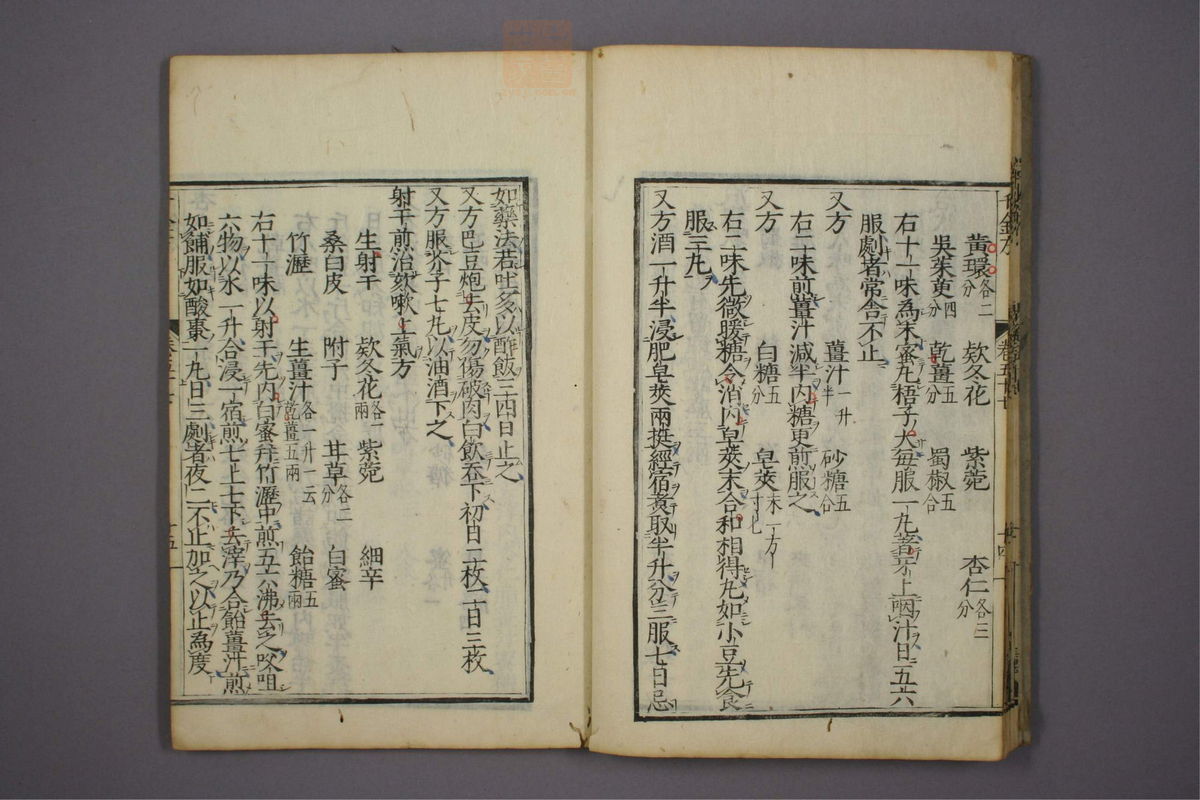 黃環各二分 欵冬花 紫菀 杏仁各三分
吳茱萸四分 乾薑五分 蜀椒五合
右十一味為末蜜丸梧子大每服一丸著牙上咽汁日五六
服劇者常含不止
又方 薑汁一升半 砂糖五合
右二味煎薑汁減半內糖更煎服之
又方 白糖五分 皂莢末一方寸七
右二味先微暖糖令消內皂莢末合和相得丸如小豆先食
服三丸
又方酒一升半浸肥皂莢兩挺經宿煑取半升分三服七日忌
如藥法若吐多以酢飯三四日止之
又方巴豆炮去皮勿傷破肉白飲吞下初日二枚二日三枚
又方服芥子七丸以油酒下之
射干煎治欬嗽上氣方
生射干 欵冬花各一兩 紫菀 細辛
桑白皮 附子 甘草各二分 白蜜
竹瀝 生薑汁各一升一云乾薑五兩 飴糖五兩
右十一味以射干先內白蜜幷竹瀝中煎五六沸去之㕮咀
六物以水一升合浸一宿煎七上七下去滓乃合飴薑汁煎
如餔服如酸棗一丸日三劇者夜二不止加之以止為度